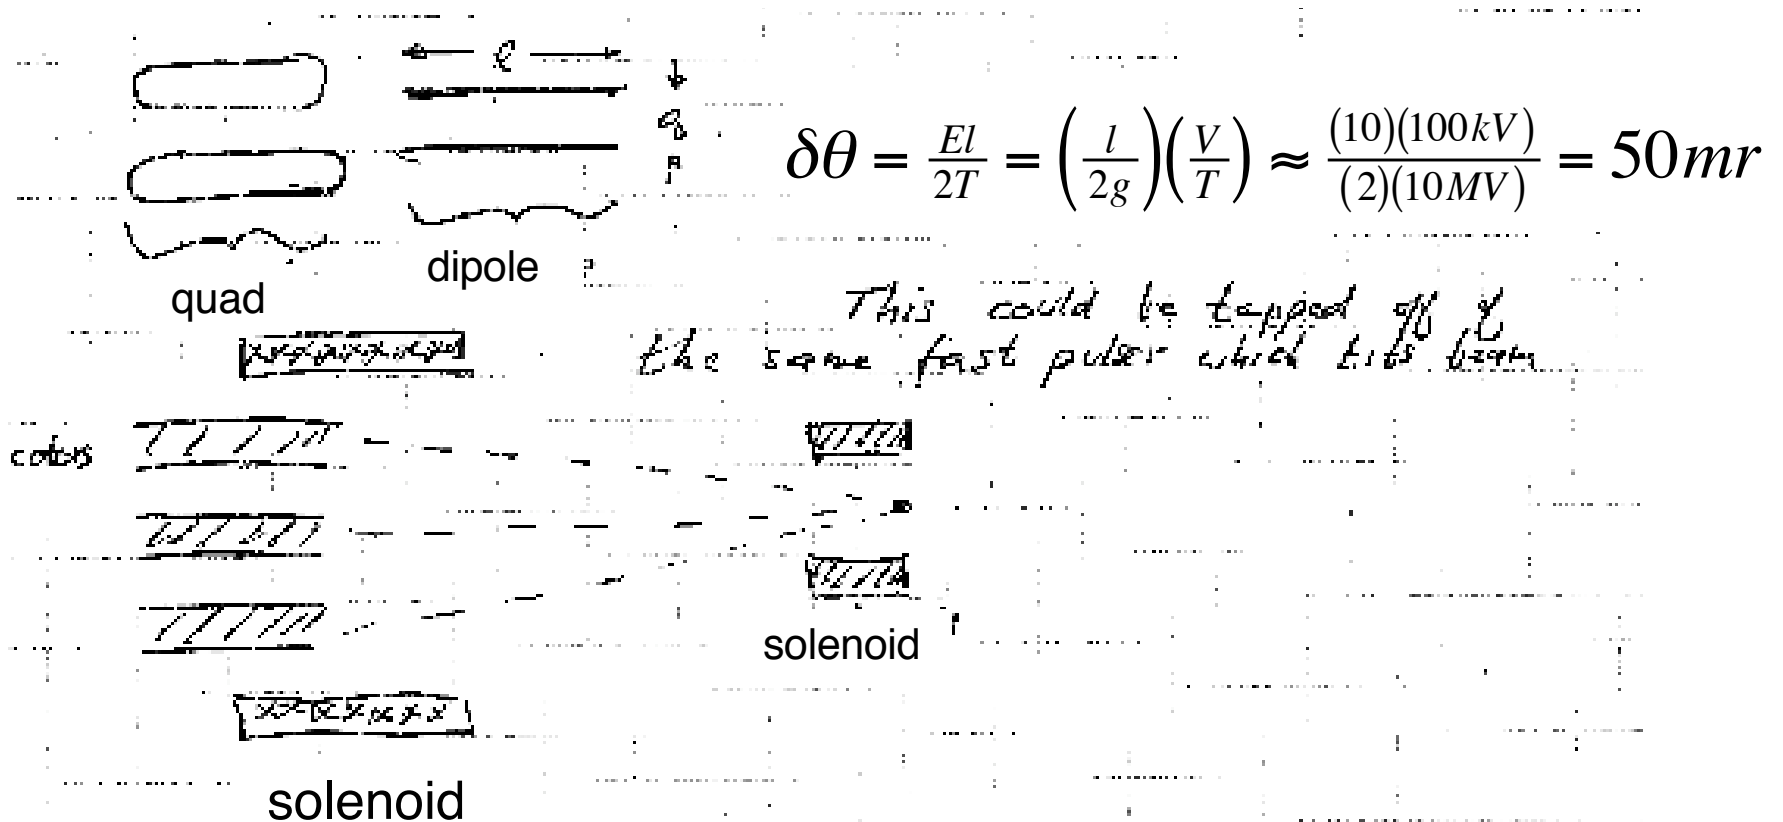 l
g
δθ = El/2T = (l/2g)(V/T) ≈ (10)(100kV)/(2)(10MV) = 50mr
dipole
quad
This could be tapped off of
the same fast pulser which tilts beam
solenoid
solenoid